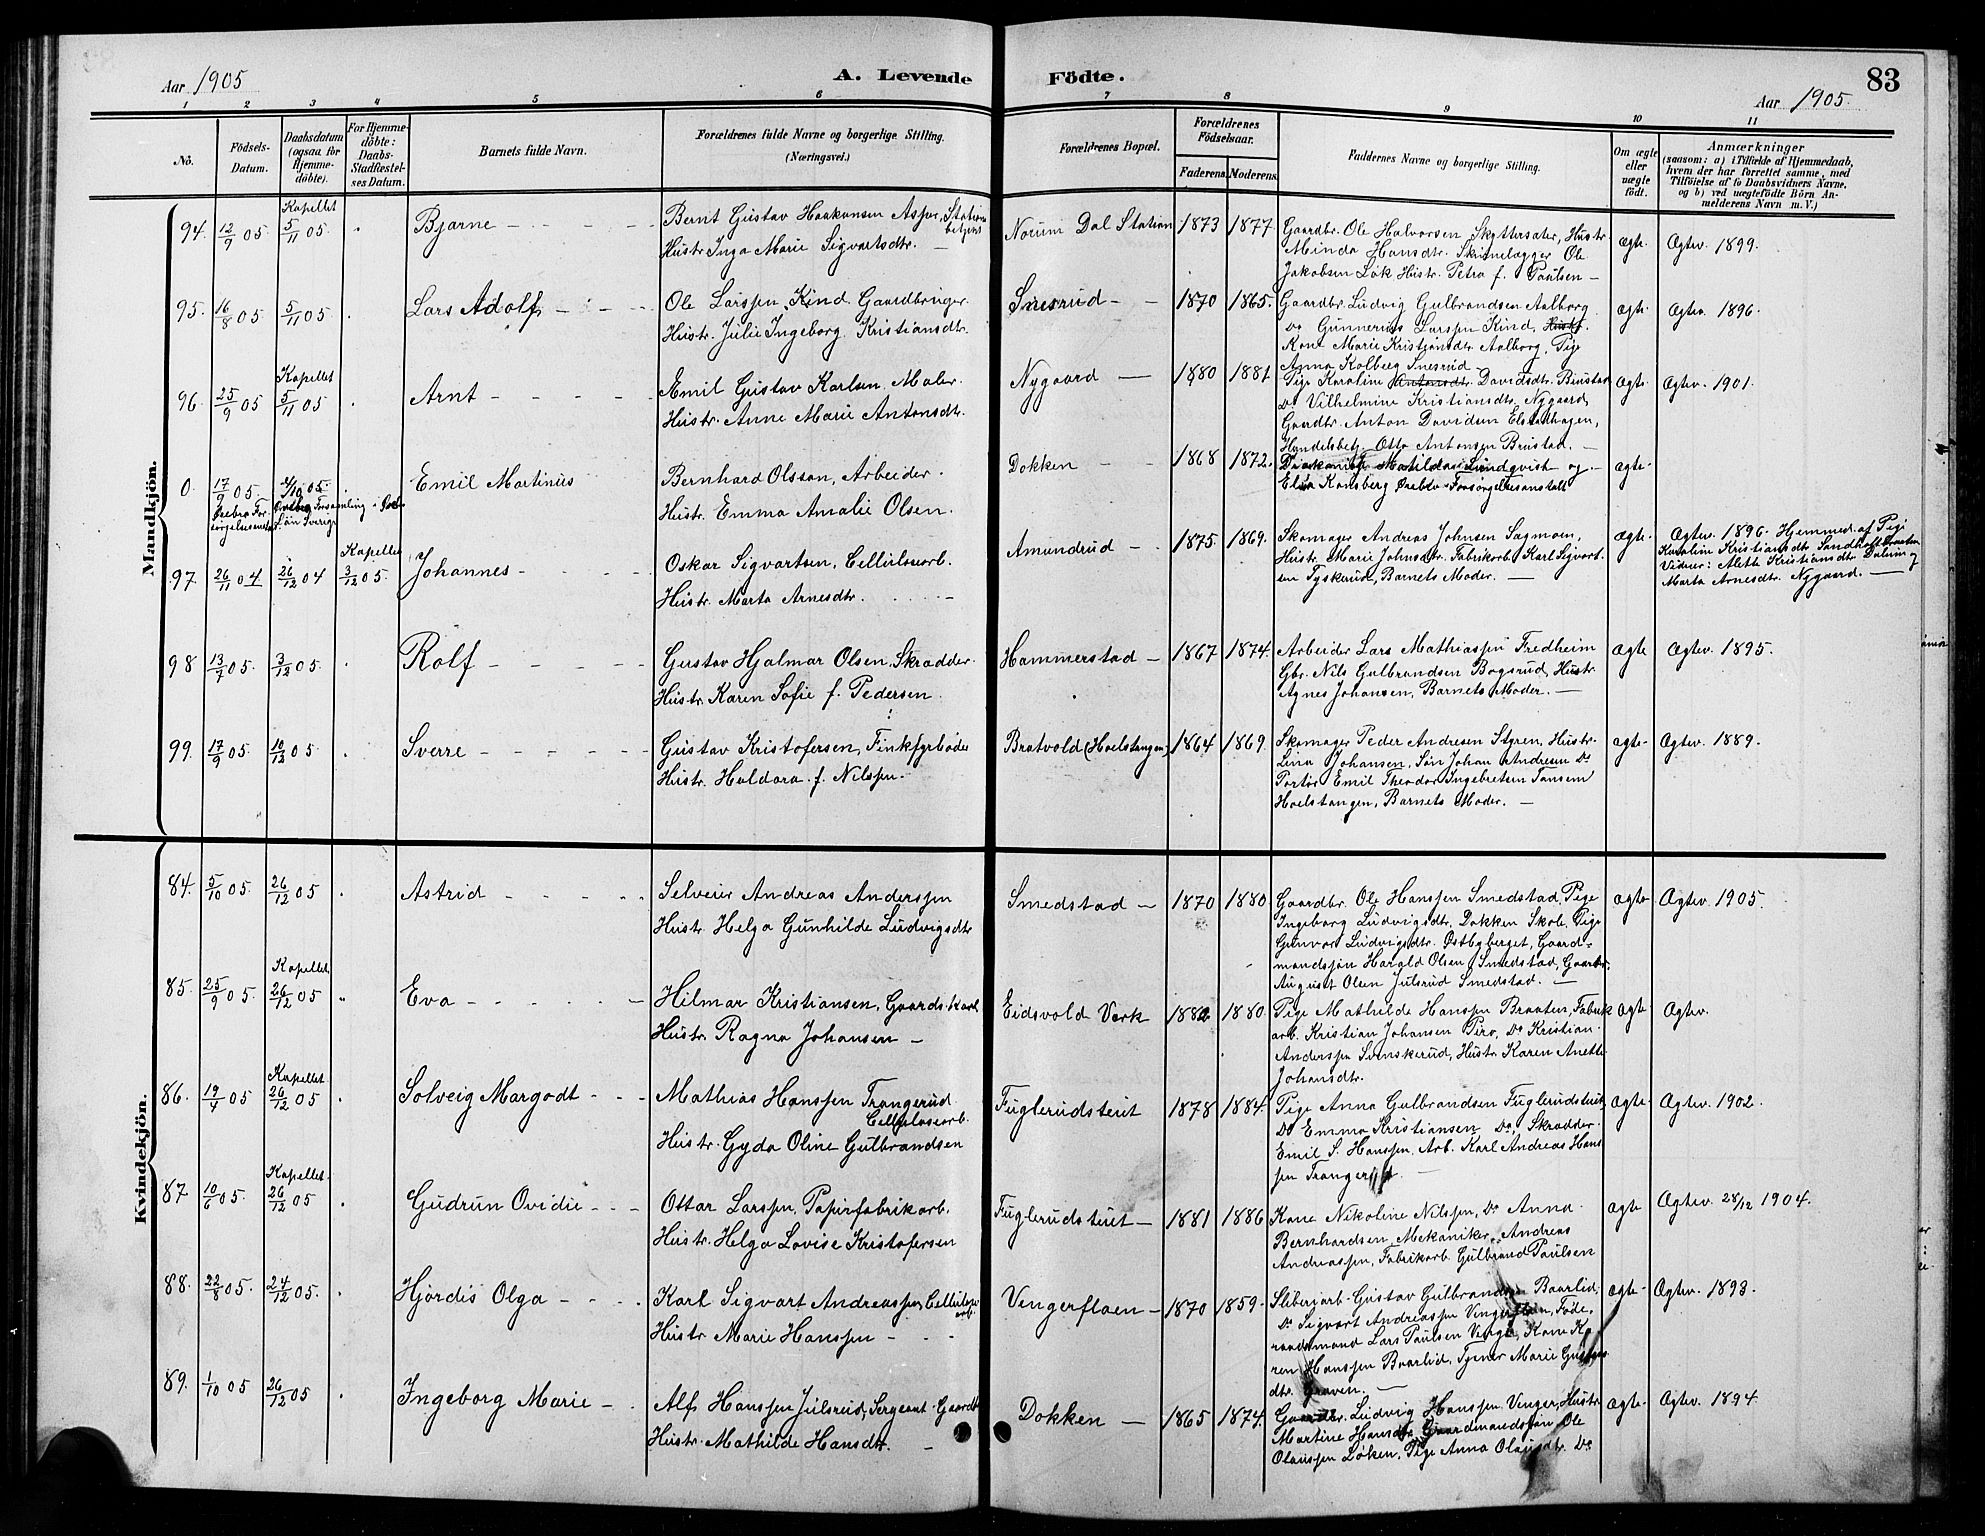 Aar 1905
A. Levende
Födte.
83
Aar 1905.
1 2 3 4 5 6 7 8 9 10 11
No.
Födsels-
Datum.
Daabsdatum
(ogsaa for
Hjemme-
döbte).
For Hjemme-
döbte:
Daabs-
Stadfæstel-
ses Datum.
Barnets fulde Navn.
Forældrenes fulde Navne og borgerlige Stilling.
(Næringsvei.)
Forældrenes Bopæl.
Forældrenes
Födselsaar.
Faderens.
Moderens.
Faddernes Navne og borgerlige Stilling.
Om ægte
eller
uægte
födt.
Anmærkninger
(saasom: a) i Tilfælde af Hjemmedaab,
hvem der har forrettet samme, med
Tilföielse af to Daabsvidners Navne,
og b) ved uægtefödte Börn An-
melderens Navn m. V.)
Mandkjön.
94. 12/9 05 Kapellet 5/11 05 Bjarne
Bernt Gustav Haakonsen Aspor, Stations
betjent
Hustr. Inga Marie Sigvartsdtr.
Norum Dal Station 1873 1877
Gaardbr. Ole Halvorsen Skyttersæter, Hustr
Minda Hansdtr. Skinnelægger Ole
Jakobsen Løk Hustr. Petra f. Paulsen
ægte Ægtev. 1899.
95. 16/8 05 5/11 05 Lars Adolf
Ole Larssen Kind Gaardbruger.
Hustr. Julie Ingeborg Kristiansdtr.
Snesrud 1870 1865.
Gaardbr. Ludvig Gulbrandsen Aalborg
Do Gunnerius Larssen Kind, Hustr.
Kone Marie Kristiansdtr Aalborg, Pige
Anna Kolberg Snesrud
ægte Ægtev. 1896.
96. 25/9 05 Kapellet 5/11 05 Arnt
Emil Gustav Karlsen. Maler.
Hustr. Anne Marie Antonsdtr.
Nygaard 1880 1881
Pige Karoline Antonsdtr. Davidsdtr. Brustad
Do Vilhelmine Kristiansdtr. Nygaard,
Gaardbr. Anton Davidsen Elstadhagen,
Handelsbetj. Otto Antonsen Brustad.
ægte Ægtev. 1901.
0. 17/9 05 /10 05. Emil Martinus
Örebro For
sörgelsesanstalt
Bernhard Olsson, Arbeider.
Hustr. Emma Amalie Olsen.
Dokken 1868 1872.
Matilda Lundqvist og
Konsberg Örebro Forsörgelsesanstalt
ægte
97. 26/11 04 26/12 04 Kapellet 3/12 05. Johannes
Oskar Sigvartsen, Cellulosearb.
Hustr. Marta Arnesdtr.
Amundrud 1875. 1869.
Skomager Andreas Johnsen Sagmoen,
Hustr. Marie Johnsdtr. Fabrikarb. Karl Sigvart-
sen Tyskerud, Barnets Moder.
ægte. Ægtev. 1896. Hjemmed. af Pige
Karoline Kristiansdtr
Vidner: Alette Kristiansdtr. og
Marta Arnesdtr. Nygaard.
98 13/7 05. 3/12 05. Rolf
Gustav Hjalmar Olsen. Skrædder.
Hustr. Karen Sofie f. Pedersen.
Hammerstad 1867 1874.
Arbeider Lars Mathiassen Fredheim
Gbr. Nils Gulbrandsen Bogsrud, Hustr
Agnes Johansen, Barnets Moder.
ægte Ægtev. 1895.
99. 17/9 05. 10/12 05. Sverre
Gustav Kristofersen, Finkfyrböder
Hustr. Haldora f. Nilssen.
Bratvold (Hoelstangen) 1864 1869.
Skomager Peder Andresen Styren, Hustr.
Lina Johansen, Sön Johan Andresen Do
Portör Emil Theodor Ingebretsen Tansem
Hoelstangen, Barnets Moder.
ægte Ægtev. 1889.
Kvindekjön.
84. 5/10 05. 26/12 05 Astrid
Selveier Andreas Anderssen
Hustr. Helga Gunhilde Ludvigsdtr
Smedstad 1870 1880
Gaardbr. Ole Hanssen Smedstad, Pige
Ingeborg Ludvigsdtr. Dokken Skole, Pige
Gunvor Ludvigsdtr. Østbyberget, Gaard-
mandssön Harald Olsen Smedstad, Gaardbr.
August Olsen Julsrud Smedstad.
ægte Ægtev. 1905.
85. 25/9 05. Kapellet 26/12 05 Eva
Hilmar Kristiansen, Gaards-Karl
Hustr Ragna Johansen
Eidsvold Værk 1882 1880.
Pige Mathilde Hanssen Braaten, Fabrik
arb. Kristian Johansen Piro, Do Kristian
Anderssen Svenskerud, Hustr. Karen Anette
Johansdtr.
ægte Ægtev.
86. 19/4 05 Kapellet 26/12 05 Solveig Margodt
Mathias Hanssen Trangerud
Cellulosearb.
Hustr. Gyda Oline Gulbrandsen
Fuglerudsteiet 1878 1884.
Pige Anna Gulbrandsen Fuglerudsteiet,
Do Emma Kristiansen Do, Skrædder.
Emil S. Hanssen, Arb. Karl Andreas Hans
sen Trangerud
ægte Ægtev. 1902.
87. 10/6 05. Kapellet. 26/12 05 Gudrun Ovidie
Ottar Larssen, Papirfabrikarb.
Hustr. Helga Lovise Kristofersen
Fuglerudsteiet 1881 1886
Kone Nikoline Nilssen, Do Anna
Bernhardsen, Mekaniker Andreas
Andreassen, Fabrikarb. Gulbrand Paulsen
ægte Ægtev. 28/12 1904.
88. 22/8 05. 24/12 05. Hjördis Olga
Karl Sigvart Andreassen, Cellulose
arb.
Hustr Marie Hanssen
Vingerflaen 1870 1859.
Sliberiarb. Gustav Gulbrandsen Baarlid,
Do Sigvart Andreassen Vingerflaen, Föde-
raadsmand Lars Paulsen Vinger, Kone Ka
ren Hanssen Baarlid, Tjener Marie
dtr. Graven.
ægte Ægtev. 1893.
89. 1/10 05 26/12 05 Ingeborg Marie
Alf Hanssen Julsrud, Sergeant Gaardbr
Hustr. Mathilde Hansdtr.
Dokken 1865 1874.
Gaardbr. Ludvig Hanssen Vinger, Hustr
Martine Hansdtr. Gaardmandssön Ole
Olaussen Löken, Pige Anna Olausdtr. Do
ægte Ægtev. 1894